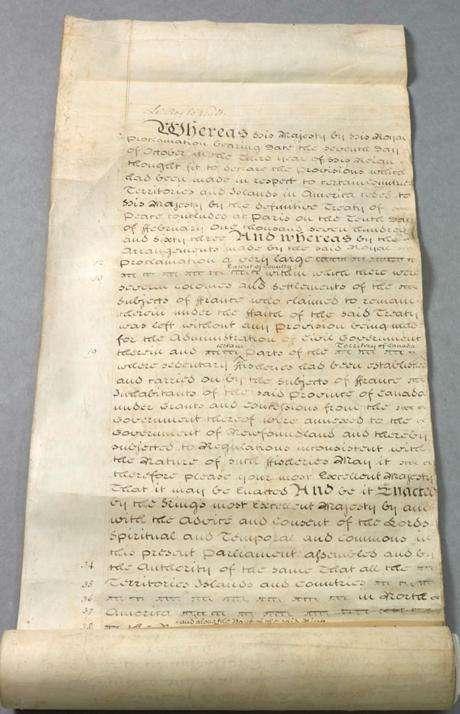 Whereas His Majesty by His Royal
Proclamation bearing date the seventh day
of October in the third year of His Reign
thought fit to declare the Provisions which
had been made in respect to certain Countries
Territories and Islands in America ceded to
His Majesty by the definitive Treaty of
Peace concluded at Paris on the Tenth day
of February One thousand seven hundred
and sixty three And whereas by the
Arrangements made by the said Royal
Proclamation a very large
within which there were
several Colonies and Settlements of the
Subjects of France who claimed to remain
therein under the Faith of the said Treaty
was left without any Provision being made
for the Administration of Civil Government
certain Territory of Canada
19 therein and Parts of the
where sedentary Fisheries had been established
and carried on by the Subjects of France
Inhabitants of the said Province of Canada
under Grants and Concessions from the
Government thereof were annexed to the
Government of Newfoundland and thereby
subjected to Regulations inconsistent with
the Nature of such Fisheries May it
therefore please your most Excellent Majesty
That it may be Enacted And be it Enacted
by the Kings most Excellent Majesty by and
with the Advice and Consent of the Lords
Spiritual and Temporal and Commons in
this present Parliament assembled and by
34 the Authority of the same That all the
35 Territories Islands and Countries
36 in North
37 America